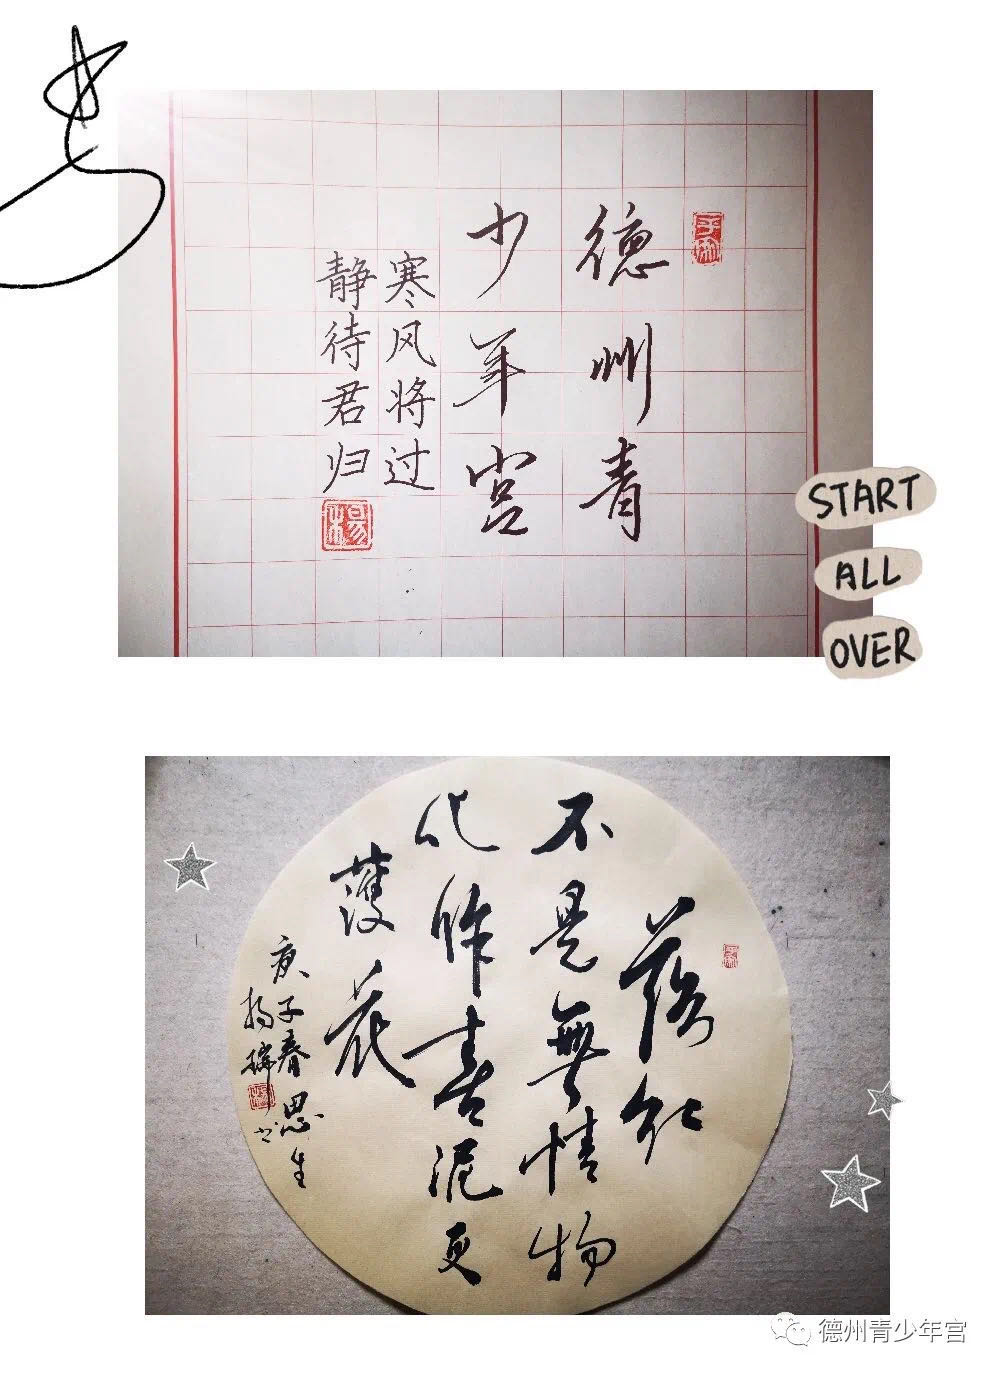 德州青
少年宫
寒风将过
静待君归
楊
START
ALL
OVER
落红
不是無情物
化作春泥更
護花
庚子春思生
楊瑞
书
德州青少年宫